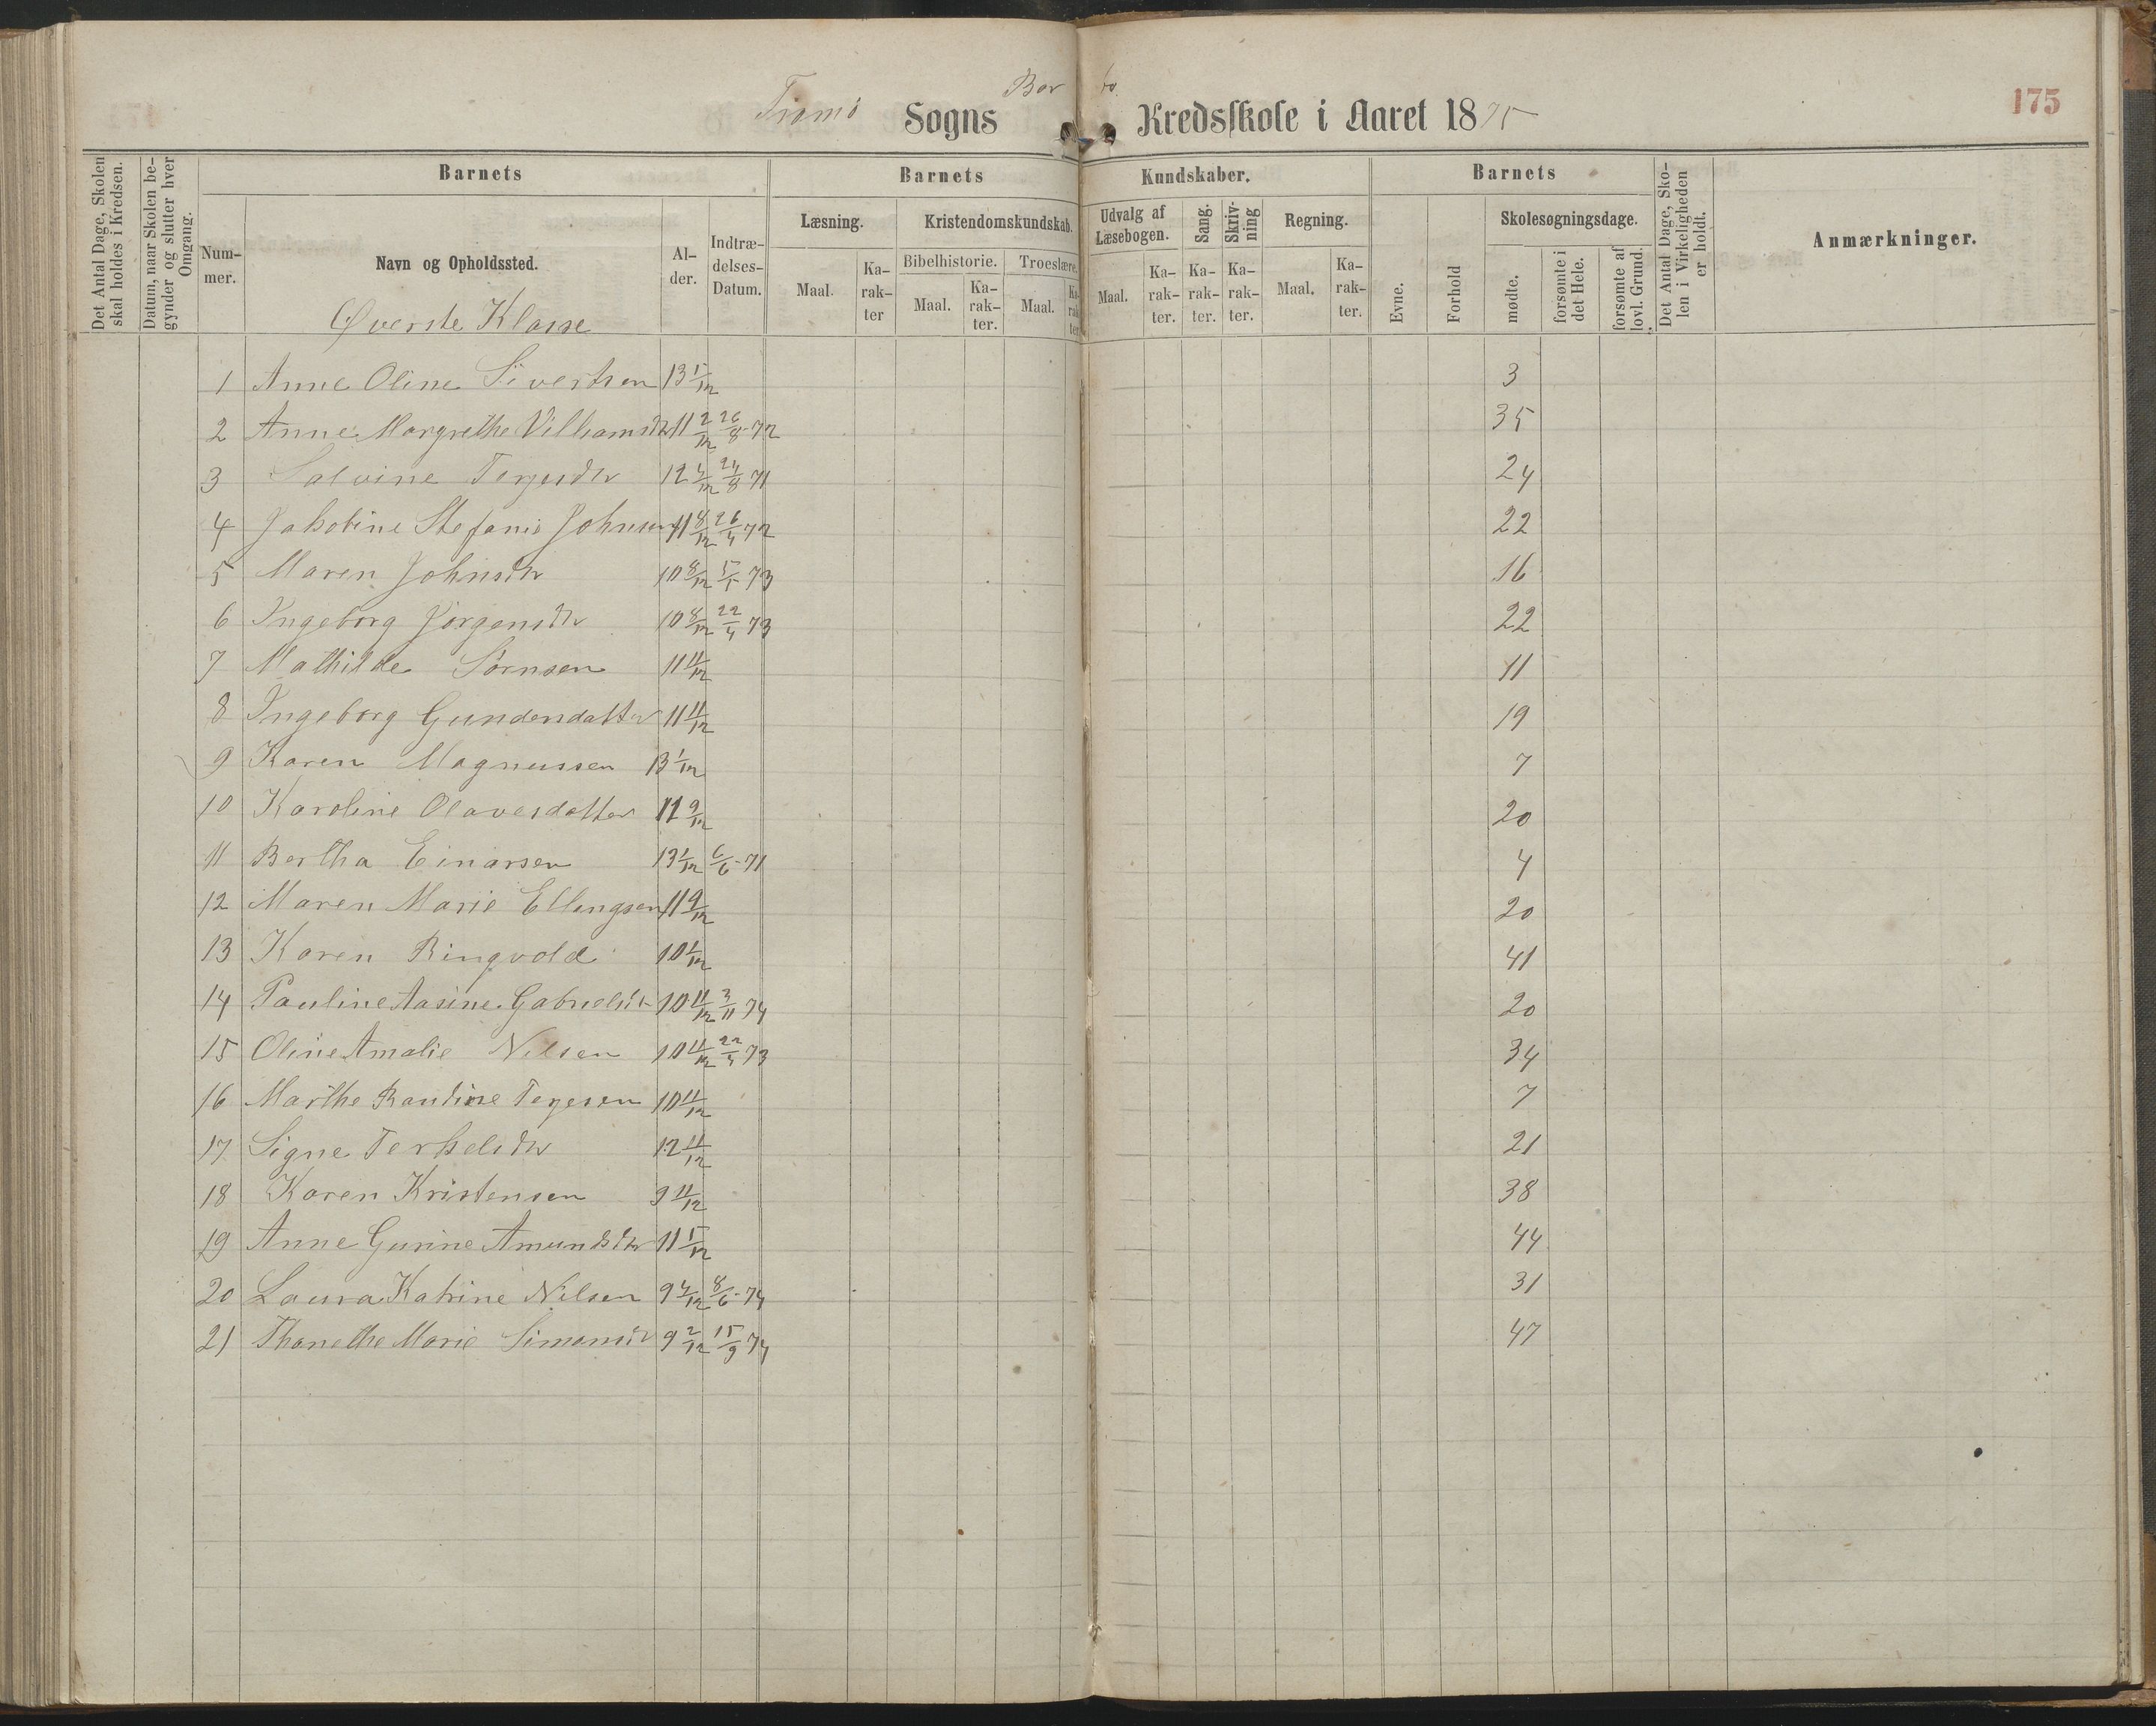 Tromø Sogns Bor bo Kredsskole i Aaret 1875
175
Det Antal Dage, Skolen skal holdes i Kredsen.
Datum, naar Skolen begynder og slutter hver Omgang.
Barnets
Nummer.
Navn og Opholdssted.
Alder.
Indtrædelses-Datum.
Barnets Kundskaber.
Læsning.
Maal.
Karakter
Kristendomskundskab.
Bibelhistorie.
Maal.
Karakter.
Troeslære.
Maal.
Karakter
Udvalg af Læsebogen.
Maal.
Karakter.
Sang.
Karakter.
Skrivning
Karakter.
Regning.
Maal.
Karakter.
Barnets
Evne.
Forhold
Skolesøgningsdage.
mødte.
forsømte i det Hele.
forsømte af lovl. Grund.
Det Antal Dage, Skolen i Virkeligheden er holdt.
Anmærkninger.
Øverste Klasse
1 Anne Oline Sivertsen 13 5/12 3
2 Anne Margrethe Vilhamsdtr 11 2/12 26/8-72 35
3 Salvine Terjesdtr 12 4/12 24/8 71 24
4 Jakobine Stefanie Johnsen 11 8/12 26/4 72 22
5 Maren Johnsdtr 10 8/12 5/5 73 16
6 Ingeborg Jørgensdtr 10 8/12 22/4 73 22
7 Mathilde Sørnsen 11 11/12 11
8 Ingeborg Gundersdatter 11 11/12 19
9 Karen Magnussen 13 1/12 7
10 Karoline Olavesdatter 11 9/12 20
11 Bertha Einarsen 13 1/12 6/6-71 4
12 Maren Marie Ellingsen 11 9/12 20
13 Karen Ringvold 10 1/12 41
14 Pauline Aasine Gabrielsdtr 10 11/12 3/11 74 20
15 Oline Amalie Nilsen 10 11/12 22/4 73 34
16 Marthe Randine Terjesen 10 11/12 7
17 Signe Terkelsdtr 12 11/12 21
18 Karen Kristensen 9 11/12 38
19 Anne Gurine Amundsdtr 11 5/12 44
20 Laura Katrine Nilsen 9 4/12 8/6-74 31
21 Thanethe Marie Simonsdtr 9 2/12 15/9 74 47